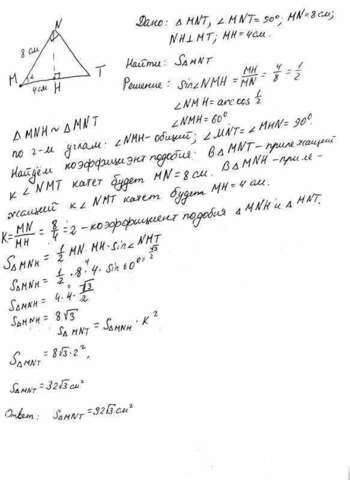 N
8 см
M
4см
H
T
Дано: △MNT, ∠MNT=90°, MN=8см;
NH⊥MT; MH=4см.
Найти: S△MNT
Решение: sin∠NMH = MH/MN = 4/8 = 1/2
∠NMH = arccos 1/2
∠NMH = 60°
△MNH ~ △MNT
по 2-м углам: ∠NMH-общий; ∠MNT=∠MHN=90°
Найдём коэффициэнт подобия: В △MNT-прилежащий
к ∠NMT катет будет MN=8см. В △MNH-приле-
жащий к ∠NMT катет будет MH=4см.
K = MN/MH = 8/4 = 2 - коэффициент подобия △MNH и △MNT.
S△MNH = 1/2 MN·MH·sin∠NMT
S△MNH = 1/2·8·4·sin60° √3/2
S△MNH = 4·4·√3/2
S△MNH = 8√3
S△MNT = S△MNH·K²
S△MNT = 8√3·2²,
S△MNT = 32√3 см²
Ответ: S△MNT = 32√3 см²